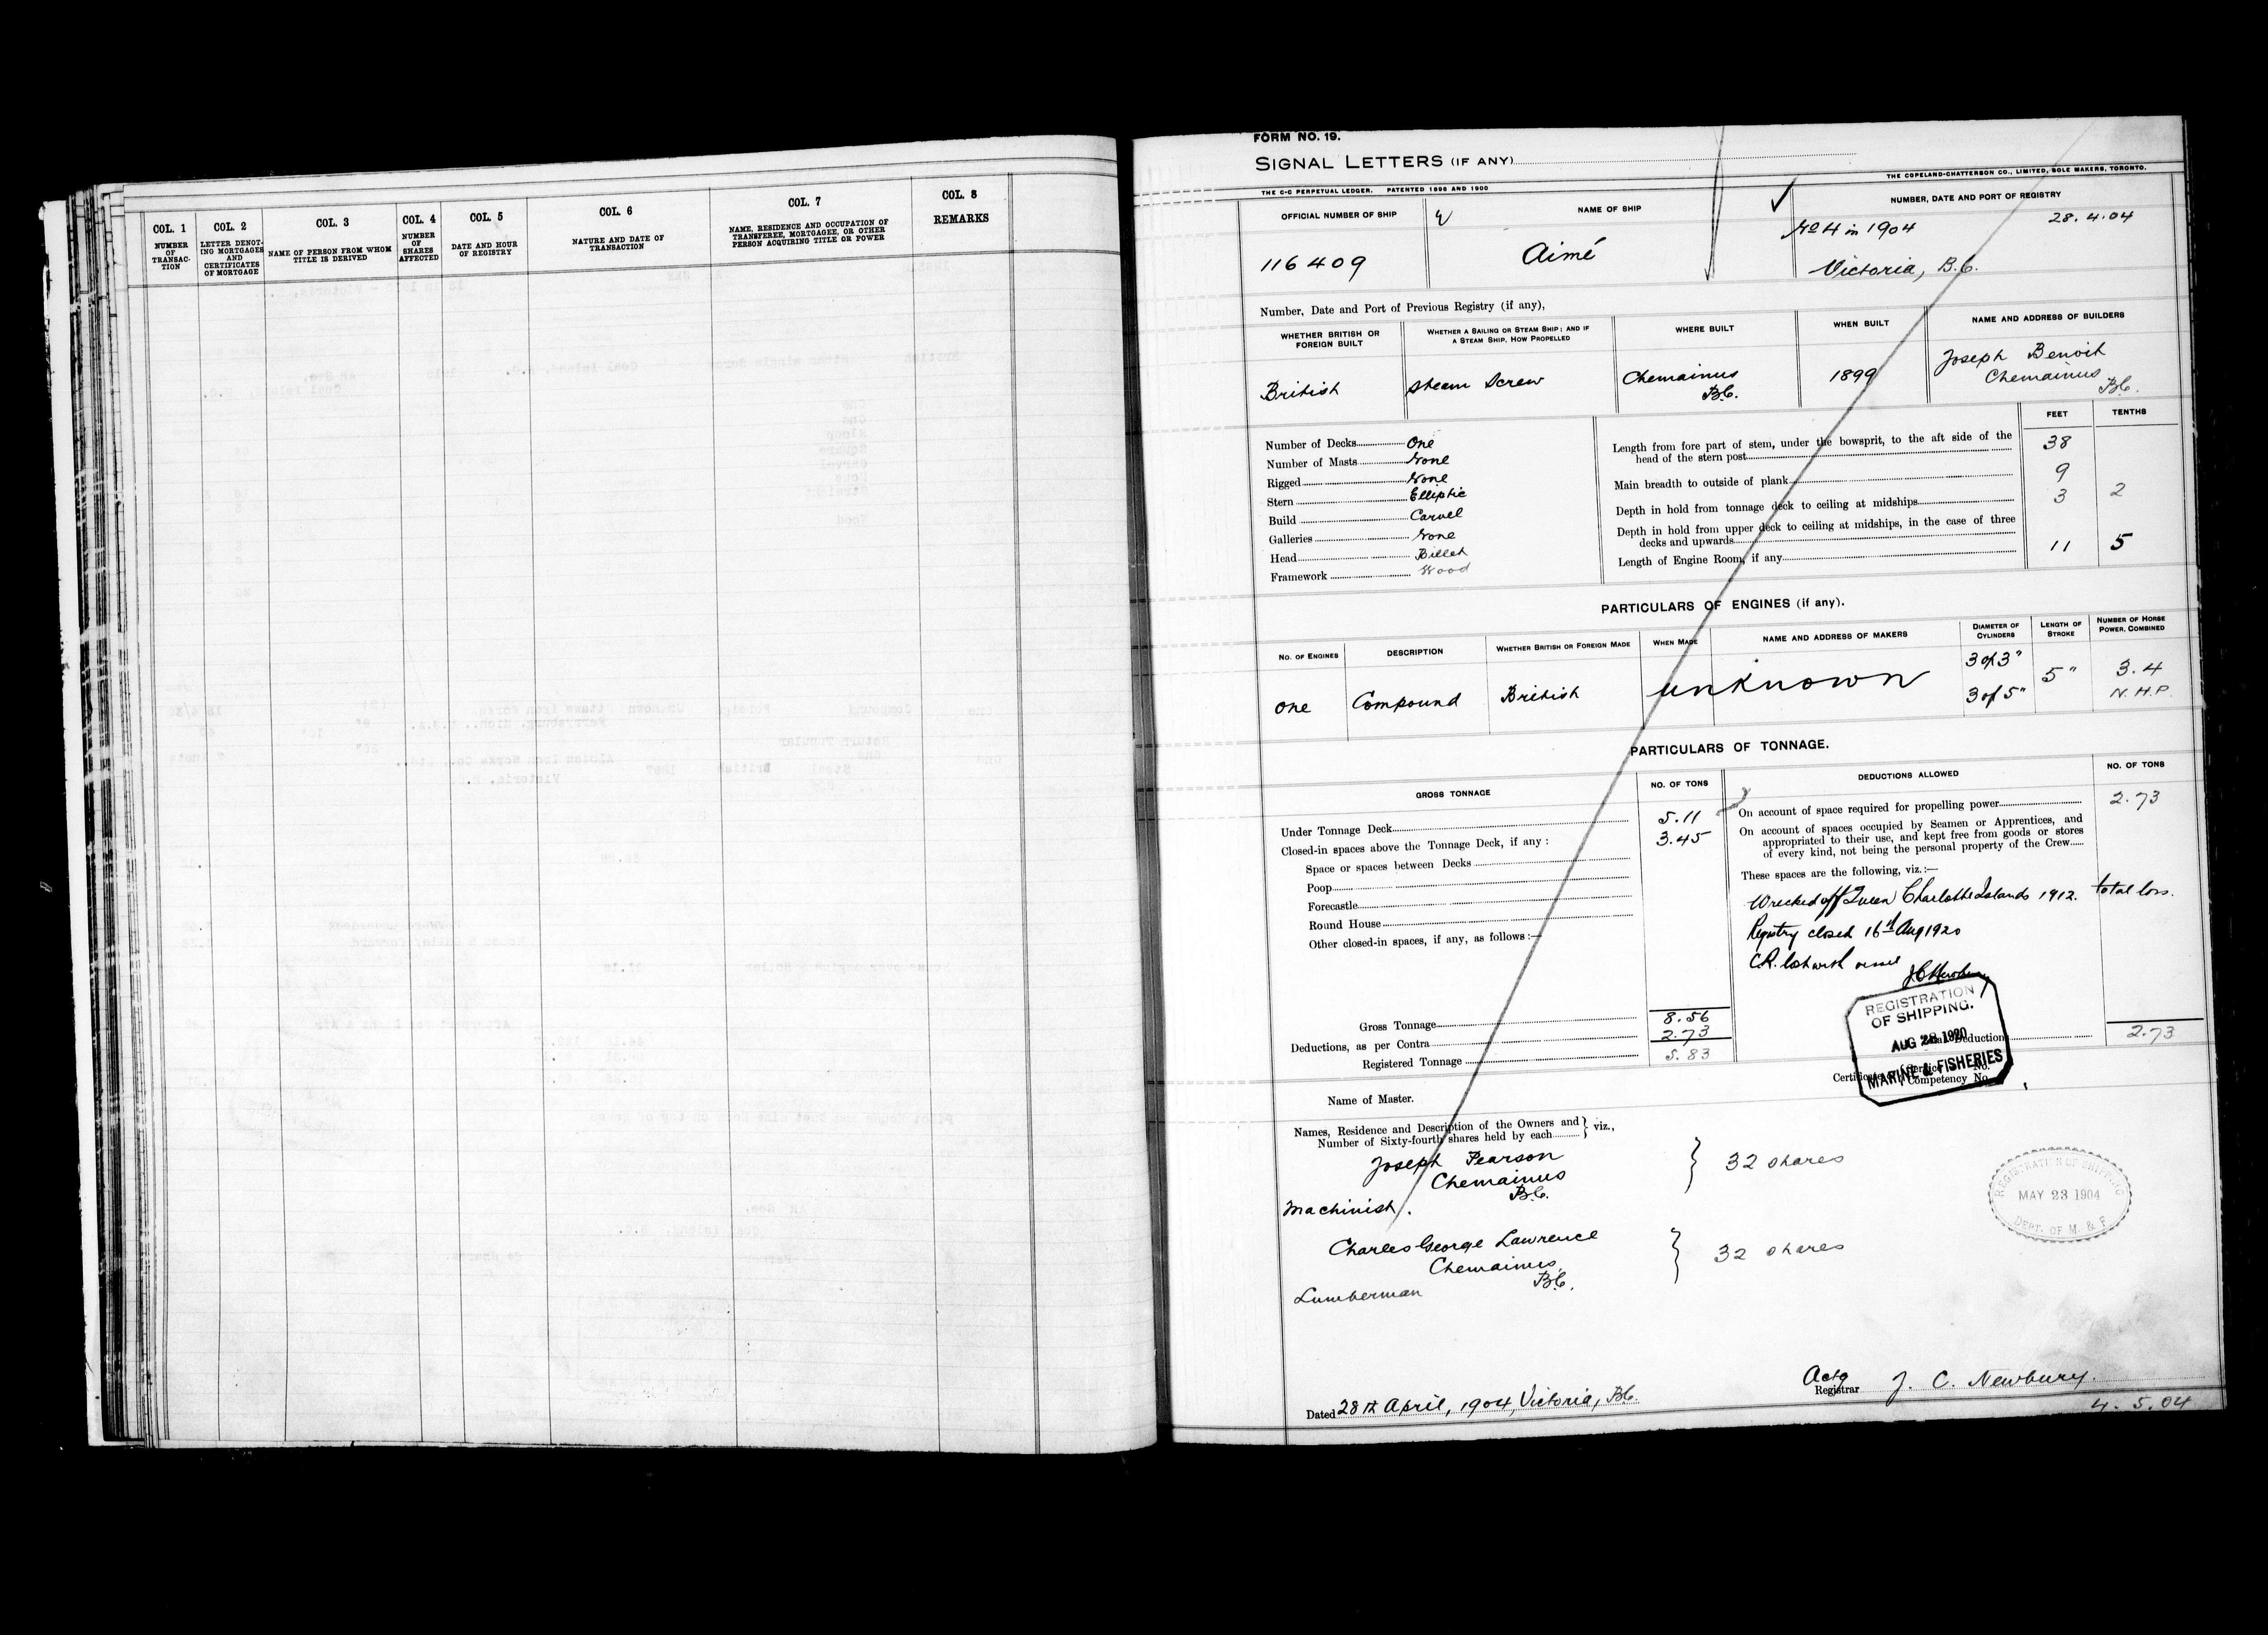 COL. 1
NUMBER
OF
TRANSAC-
TION
COL. 2
LETTER DENOT-
ING MORTGAGES
AND
CERTIFICATES
OF MORTGAGE
COL. 3
NAME OF PERSON FROM WHOM
TITLE IS DERIVED
COL. 4
NUMBER
OF
SHARES
AFFECTED
COL. 5
DATE AND HOUR
OF REGISTRY
COL. 6
NATURE AND DATE OF
TRANSACTION
COL. 7
NAME, RESIDENCE AND OCCUPATION OF
TRANSFEREE, MORTGAGEE, OR OTHER
PERSON ACQUIRING TITLE OR POWER
COL. 8
REMARKS
FORM NO. 19.
SIGNAL LETTERS (IF ANY)
THE C-C PERPETUAL LEDGER. PATENTED 1896 AND 1900
THE COPELAND-CHATTERSON CO., LIMITED, SOLE MAKERS, TORONTO.
OFFICIAL NUMBER OF SHIP
116409
NAME OF SHIP
Aimé
NUMBER, DATE AND PORT OF REGISTRY
No 4 in 1904 28.4.04
Victoria, B.C.
Number, Date and Port of Previous Registry (if any),
WHETHER BRITISH OR
FOREIGN BUILT
British
WHETHER A SAILING OR STEAM SHIP; AND IF
A STEAM SHIP, HOW PROPELLED
Steam Screw
WHERE BUILT
Chemainus
B.C.
WHEN BUILT
1899
NAME AND ADDRESS OF BUILDERS
Joseph Benoit
Chemainus
B.C.
Number of Decks One
Number of Masts None
Rigged None
Stern Elliptic
Build Carvel
Galleries None
Head Billet
Framework Wood
FEET TENTHS
Length from fore part of stem, under the bowsprit, to the aft side of the
head of the stern post 38
Main breadth to outside of plank 9
Depth in hold from tonnage deck to ceiling at midships 3 2
Depth in hold from upper deck to ceiling at midships, in the case of three
decks and upwards
Length of Engine Room, if any 11 5
PARTICULARS OF ENGINES (if any).
NO. OF ENGINES
One
DESCRIPTION
Compound
WHETHER BRITISH OR FOREIGN MADE
British
WHEN MADE
NAME AND ADDRESS OF MAKERS
unknown
DIAMETER OF
CYLINDERS
3 of 3"
3 of 5"
LENGTH OF
STROKE
5"
NUMBER OF HORSE
POWER, COMBINED
3.4
N.H.P.
PARTICULARS OF TONNAGE.
GROSS TONNAGE
NO. OF TONS
Under Tonnage Deck 5.11
Closed-in spaces above the Tonnage Deck, if any : 3.45
Space or spaces between Decks
Poop
Forecastle
Round House
Other closed-in spaces, if any, as follows :—
Gross Tonnage 8.56
Deductions, as per Contra 2.73
Registered Tonnage 5.83
DEDUCTIONS ALLOWED
NO. OF TONS
On account of space required for propelling power 2.73
On account of spaces occupied by Seamen or Apprentices, and
appropriated to their use, and kept free from goods or stores
of every kind, not being the personal property of the Crew
These spaces are the following, viz.:—
Wrecked off Queen Charlotte Islands 1912. total loss.
Registry closed 16th Aug 1920
C.R. lost with vessel
REGISTRATION
OF SHIPPING.
AUG 28 1920
MARINE & FISHERIES
Deduction 2.73
Competency No.
Name of Master.
Names, Residence and Description of the Owners and
Number of Sixty-fourth shares held by each } viz.,
Joseph Pearson
Chemainus
B.C.
Machinist.
} 32 shares
Charles George Lawrence
Chemainus,
B.C.
Lumberman
} 32 shares
REGISTRATION OF SHIPPING
MAY 23 1904
DEPT. OF M. & F.
Dated 28th April, 1904, Victoria, B.C.
Actg
Registrar J. C. Newbury.
4.5.04